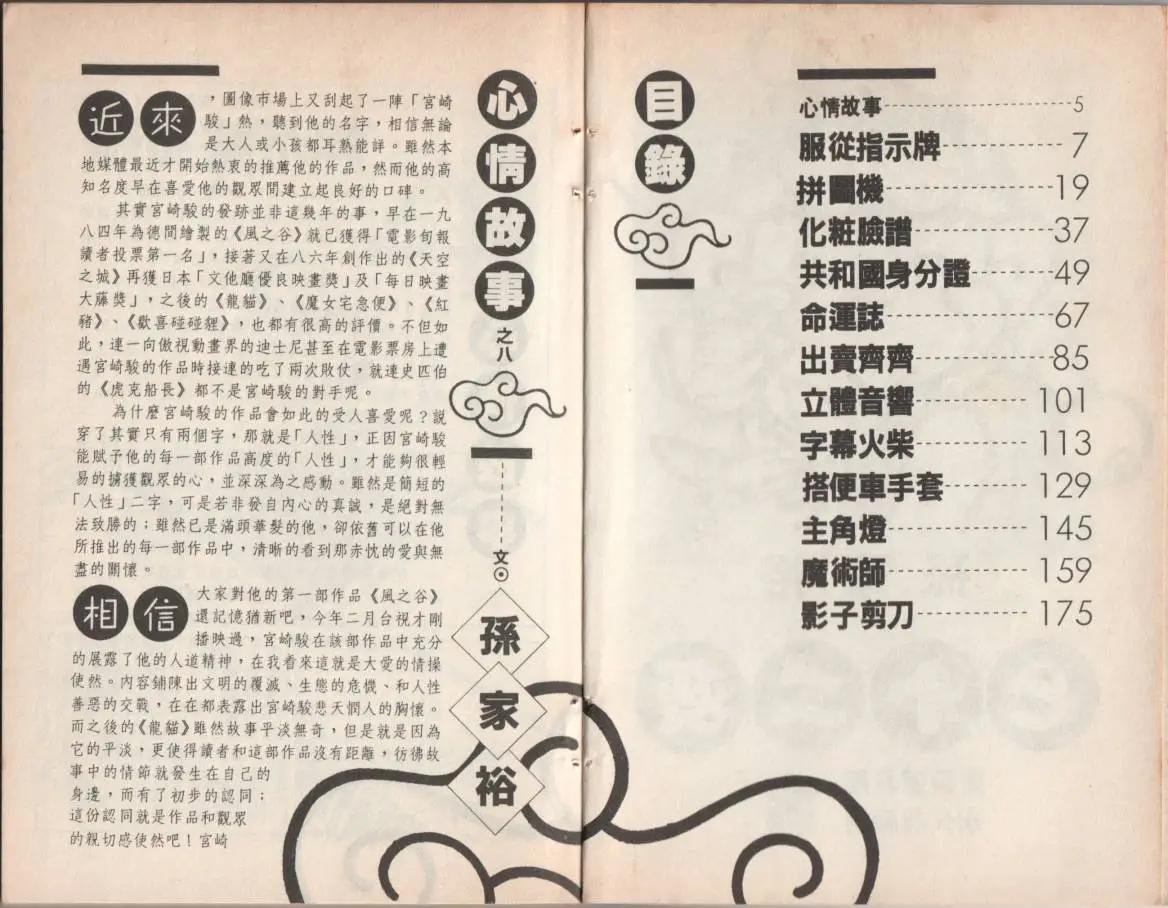 心情故事之八
文⊙
孫家裕
近來，圖像市場上又刮起了一陣「宮崎
駿」熱，聽到他的名字，相信無論
是大人或小孩都耳熟能詳。雖然本
地媒體最近才開始熱衷的推薦他的作品，然而他的高
知名度早在喜愛他的觀眾間建立起良好的口碑。
其實宮崎駿的發跡並非這幾年的事，早在一九
八四年為德間繪製的《風之谷》就已獲得「電影旬報
讀者投票第一名」，接著又在八六年創作出的《天空
之城》再獲日本「文他廳優良映畫獎」及「每日映畫
大藤獎」，之後的《龍貓》、《魔女宅急便》、《紅
豬》、《歡喜碰碰貍》，也都有很高的評價。不但如
此，連一向傲視動畫界的迪士尼甚至在電影票房上遭
遇宮崎駿的作品時接連的吃了兩次敗仗，就連史匹伯
的《虎克船長》都不是宮崎駿的對手呢。
為什麼宮崎駿的作品會如此的受人喜愛呢？說
穿了其實只有兩個字，那就是「人性」，正因宮崎駿
能賦予他的每一部作品高度的「人性」，才能夠很輕
易的擄獲觀眾的心，並深深為之感動。雖然是簡短的
「人性」二字，可是若非發自內心的真誠，是絕對無
法致勝的；雖然已是滿頭華髮的他，卻依舊可以在他
所推出的每一部作品中，清晰的看到那赤忱的愛與無
盡的關懷。
相信大家對他的第一部作品《風之谷》
還記憶猶新吧，今年二月台視才剛
播映過，宮崎駿在該部作品中充分
的展露了他的人道精神，在我看來這就是大愛的情操
使然。內容鋪陳出文明的覆滅、生態的危機、和人性
善惡的交戰，在在都表露出宮崎駿悲天憫人的胸懷。
而之後的《龍貓》雖然故事平淡無奇，但是就是因為
它的平淡，更使得讀者和這部作品沒有距離，彷彿故
事中的情節就發生在自己的
身邊，而有了初步的認同；
這份認同就是作品和觀眾
的親切感使然吧！宮崎
目錄
心情故事 5
服從指示牌 7
拼圖機 19
化粧臉譜 37
共和國身分證 49
命運誌 67
出賣齊齊 85
立體音響 101
字幕火柴 113
搭便車手套 129
主角燈 145
魔術師 159
影子剪刀 175